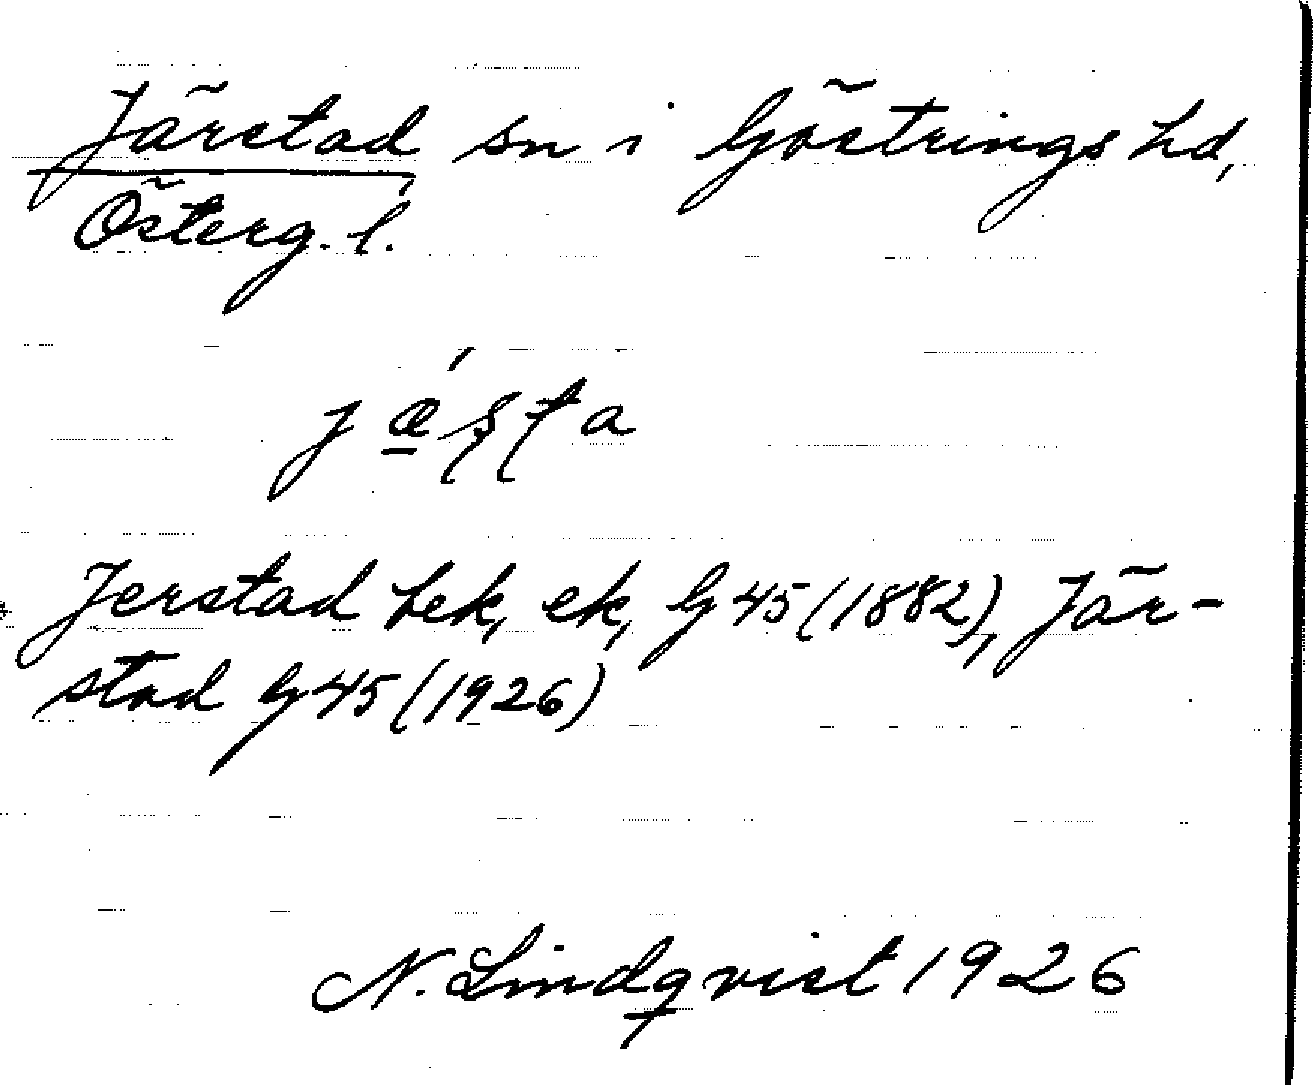 Järstad sn i Göstrings hd,
Österg. l.
jǽ̠ʂʈa
Jerstad hek, ek, G 45 (1882), Jär-
stad G 45 (1926)
N. Lindqvist 1926